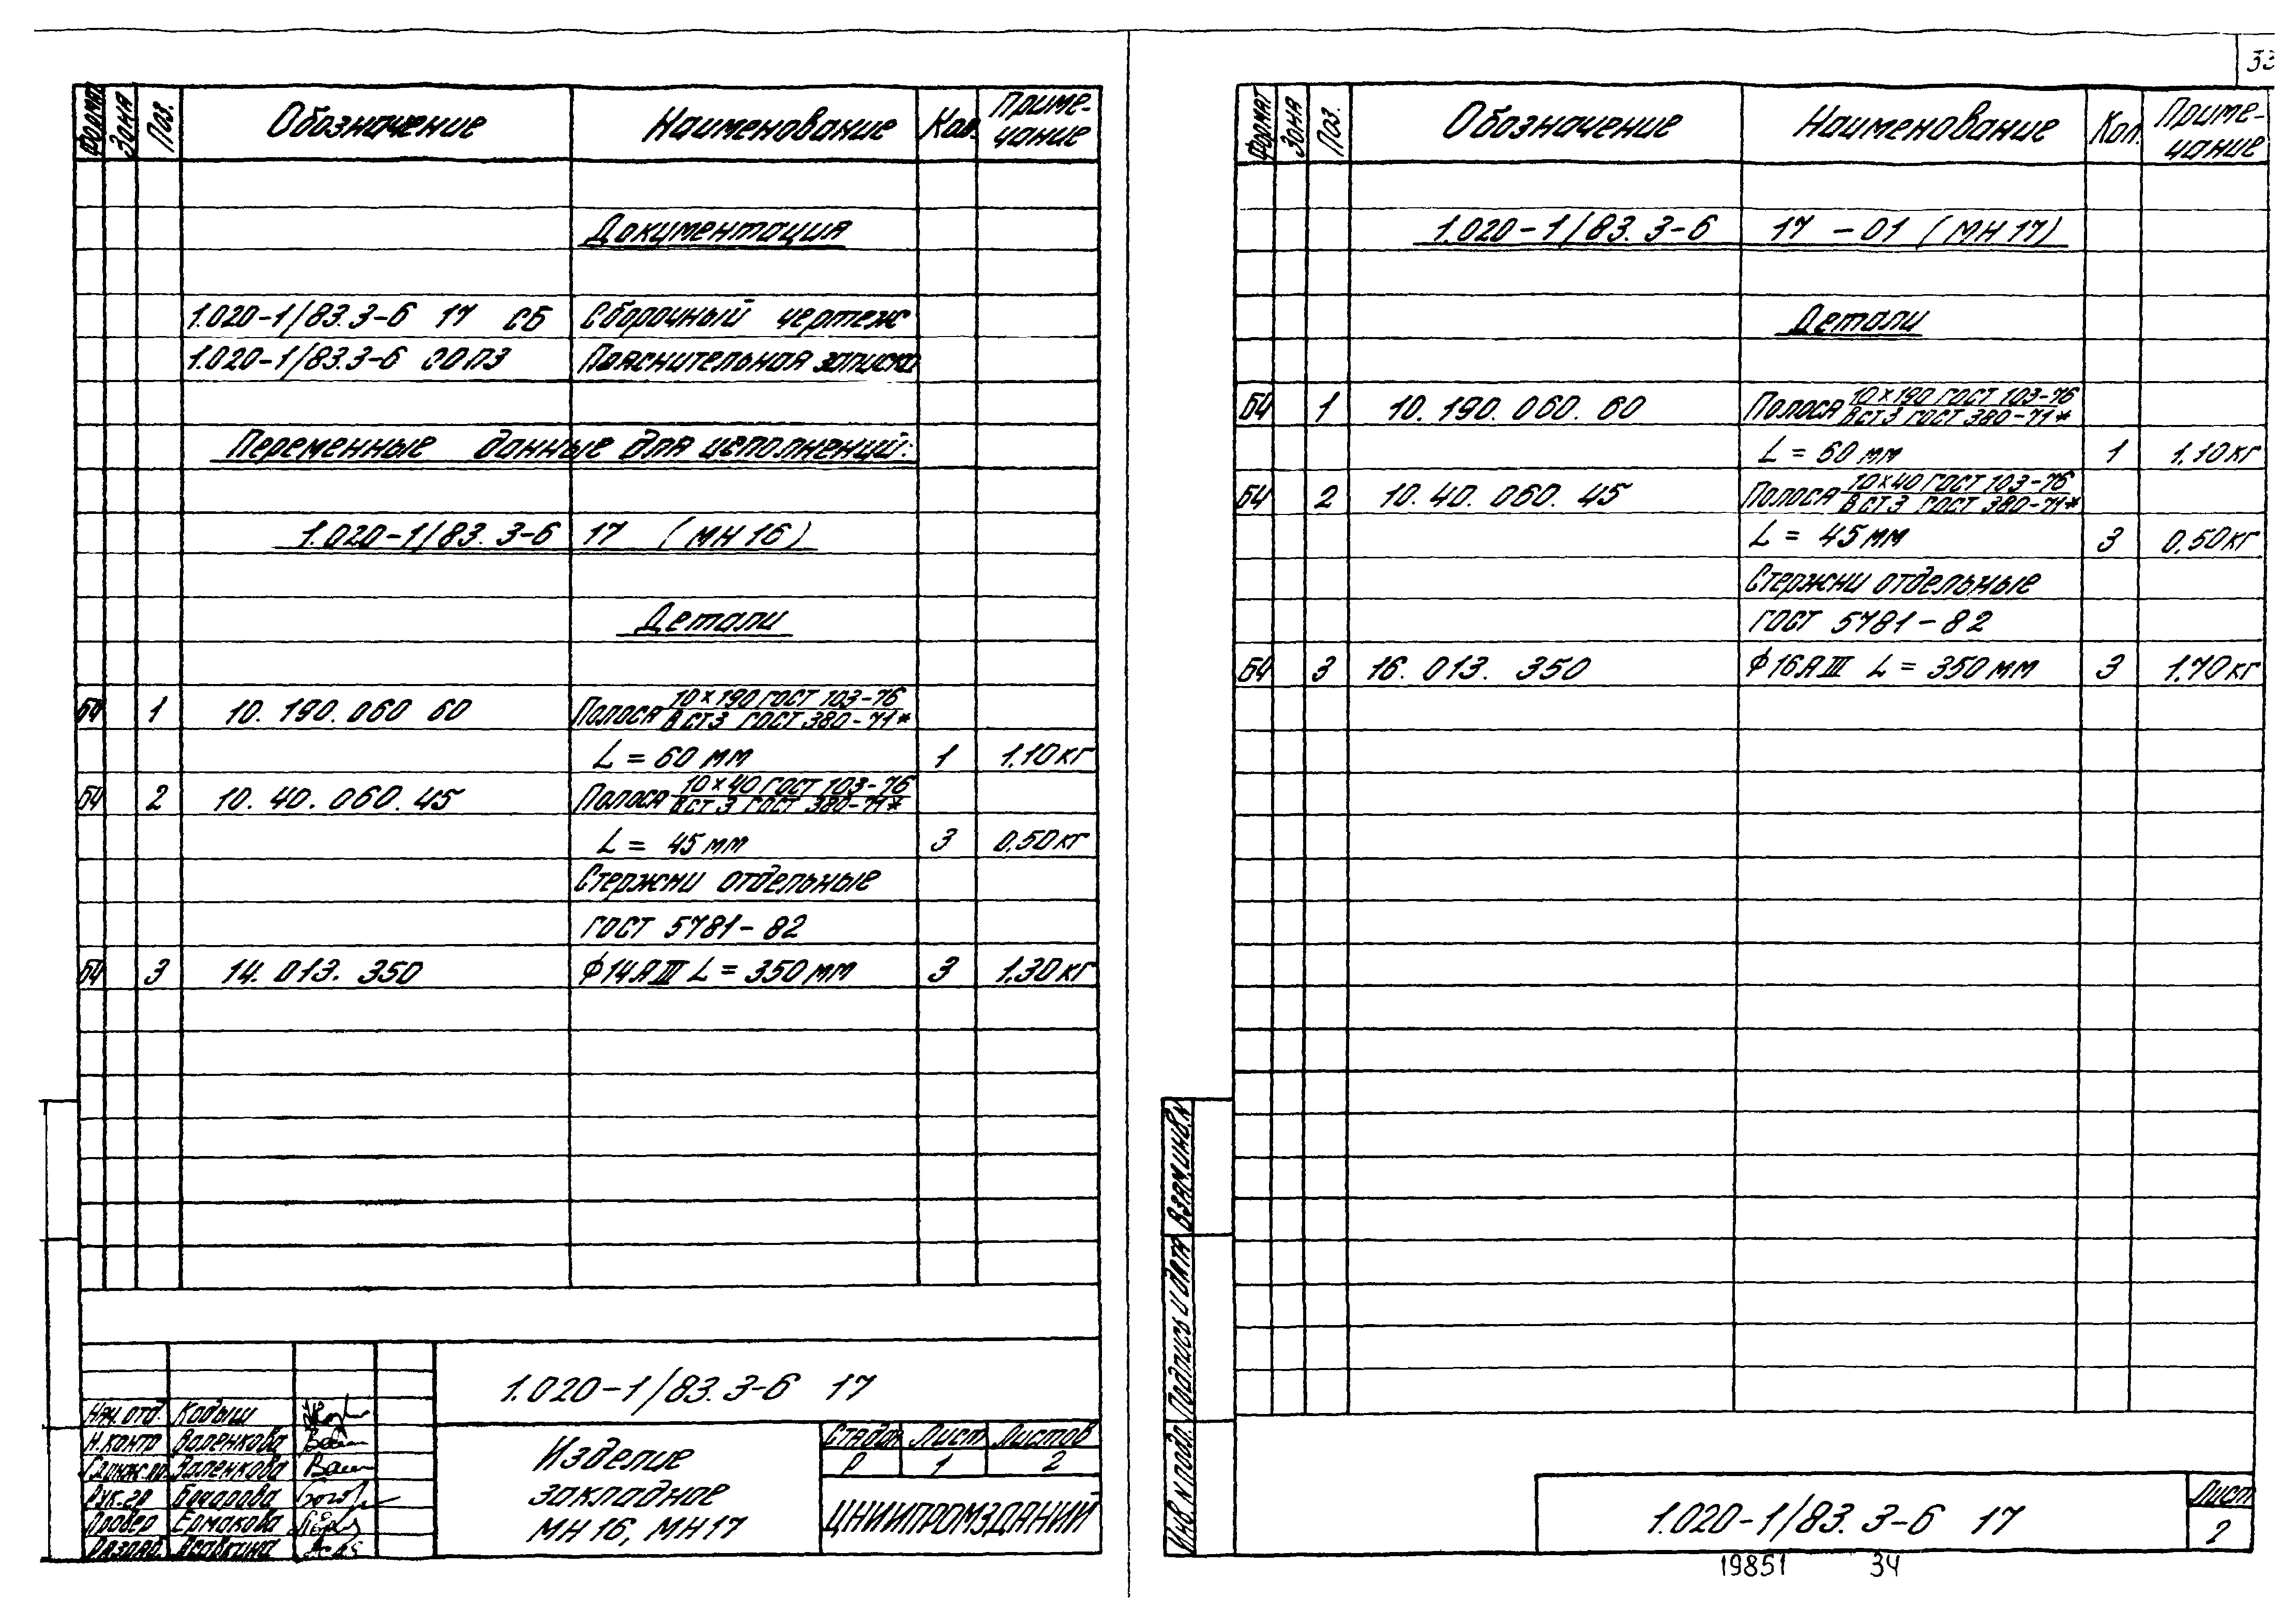 33
Формат Зона Поз. Обозначение Наименование Кол. Приме-
чание
Документация
1.020-1/83.3-6 17 СБ Сборочный чертеж
1.020-1/83.3-6 00ПЗ Пояснительная записка
Переменные данные для исполнений:
1.020-1/83.3-6 17 (МН16)
Детали
БЧ 1 10.190.060 60 Полоса 10×190 ГОСТ 103-76
ВСТ3 ГОСТ 380-71*
L = 60 мм 1 1,10кг
БЧ 2 10.40.060.45 Полоса 10×40 ГОСТ 103-76
ВСТ3 ГОСТ 380-71*
L = 45 мм 3 0,50кг
Стержни отдельные
ГОСТ 5781-82
БЧ 3 14.013.350 Ф14АIII L = 350 мм 3 1,30кг
1.020-1/83.3-6 17
Нач.отд. Кодыш
Н.контр Валенкова
Валенкова
Рук.гр Бочарова
Провер Ермакова
Разраб.
Изделие
закладное
МН16, МН17
Стадия Лист Листов
Р 1 2
ЦНИИПРОМЗДАНИЙ
Формат Зона Поз. Обозначение Наименование Кол. Приме-
чание
1.020-1/83.3-6 17 -01 (МН17)
Детали
БЧ 1 10.190.060.60 Полоса 10×190 ГОСТ 103-76
ВСТ3 ГОСТ 380-71*
L = 60 мм 1 1,10кг
БЧ 2 10.40.060.45 Полоса 10×40 ГОСТ 103-76
ВСТ3 ГОСТ 380-71*
L = 45 мм 3 0,50кг
Стержни отдельные
ГОСТ 5781-82
БЧ 3 16.013.350 Ф16АIII L = 350 мм 3 1,70кг
Инв.N подл. Подпись и дата Взам.инв.N
1.020-1/83.3-6 17
Лист
2
19851 34